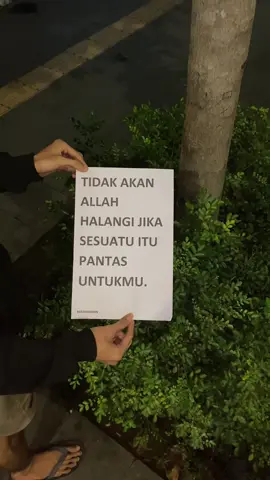 TIDAK AKAN
ALLAH
HALANGI JIKA
SESUATU ITU
PANTAS
UNTUKMU.